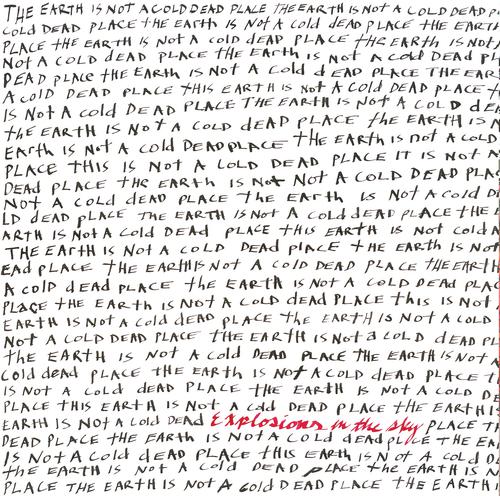 THE EARTH IS NOT A COLD DEAD PLACE THE EARTH IS NOT A COLD DEAD P
COLD DEAD PLACE THE EARTH IS NOT A COLD DEAD PLACE THE EARTH
PLACE THE EARTH IS NOT A COLD DEAD PLACE THE EARTH IS NOT
NOT A COLD DEAD PLACE THE EARTH IS NOT A COLD DEAD PL
DEAD PLACE THE EARTH IS NOT A COLD DEAD PLACE THE EAR
A COLD DEAD PLACE THIS EARTH IS NOT A COLD DEAD PLACE
IS NOT A COLD DEAD PLACE THE EARTH IS NOT A COLD DE
THE EARTH IS NOT A COLD DEAD PLACE THE EARTH IS N
EARTH IS NOT A COLD DEAD PLACE THE EARTH IS NOT A COLD
PLACE THIS IS NOT A COLD DEAD PLACE IT IS NOT A
DEAD PLACE THE EARTH IS NOT NOT A COLD DEAD PLA
NOT A COLD DEAD PLACE THE EARTH IS NOT A COLD D
LD DEAD PLACE THE EARTH IS NOT A COLD DEAD PLACE THE
ARTH IS NOT A COLD DEAD PLACE THIS EARTH IS NOT COLD A
THE EARTH IS NOT A COLD DEAD PLACE THE EARTH IS NOT
EAD PLACE THE EARTH IS NOT A COLD DEAD PLACE THE EARTH
A COLD DEAD PLACE THE EARTH IS NOT A COLD DEAD PLAC
PLACE THE EARTH IS NOT A COLD DEAD PLACE THIS IS NOT
EARTH IS NOT A COLD DEAD PLACE THE EARTH IS NOT A COLD
NOT A COLD DEAD PLACE THE EARTH IS NOT A COLD DEAD PL
THE EARTH IS NOT A COLD DEAD PLACE THE EARTH IS NOT A
COLD DEAD PLACE THE EARTH IS NOT A COLD DEAD PLACE T
IS NOT A COLD DEAD PLACE THE EARTH IS NOT A COLD
PLACE THIS EARTH IS NOT A COLD DEAD PLACE THE EARTH
EARTH IS NOT A COLD DEAD Explosions in the sky PLACE T
DEAD PLACE THE EARTH IS NOT A COLD DEAD PLACE THE EA
IS NOT A COLD DEAD PLACE THIS EARTH IS NOT A COLD D
THE EARTH IS NOT A COLD DEAD PLACE THE EARTH IS N
PLACE THE EARTH IS NOT A COLD DEAD PLACE THE EARTH